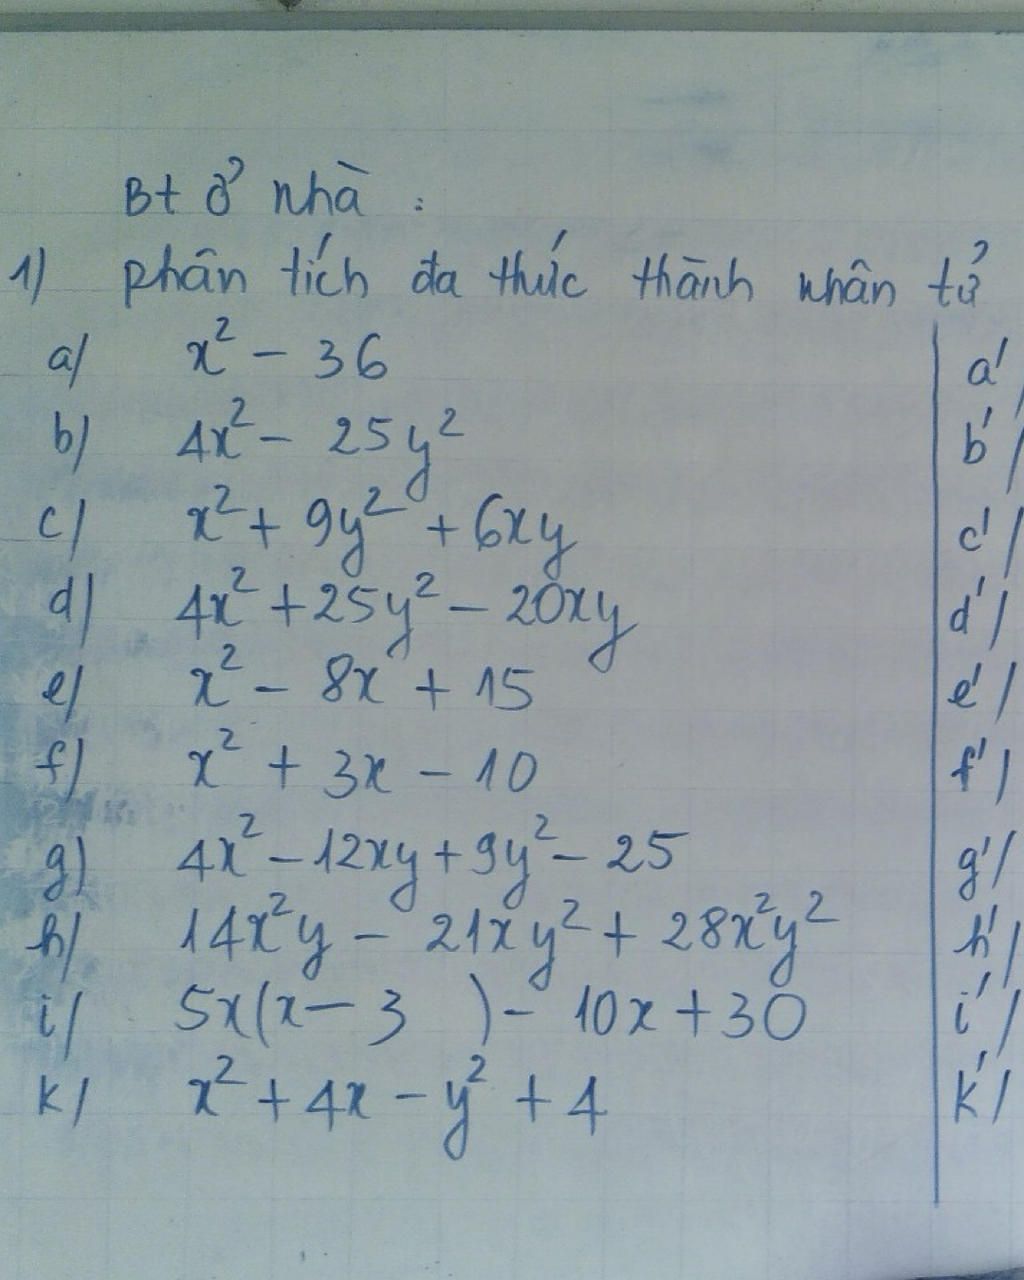 Bt ở nhà :
1) phân tích đa thức thành nhân tử
a/ x² - 36
a'/
b/ 4x² - 25y²
b'/
c/ x² + 9y² + 6xy
c'/
d/ 4x² + 25y² - 20xy
d'/
e/ x² - 8x + 15
e'/
f/ x² + 3x - 10
f'/
g) 4x² - 12xy + 9y² - 25
g'/
h/ 14x²y - 21xy² + 28x²y²
h'/
i/ 5x(x - 3 ) - 10x + 30
i'/
k/ x² + 4x - y² + 4
k'/